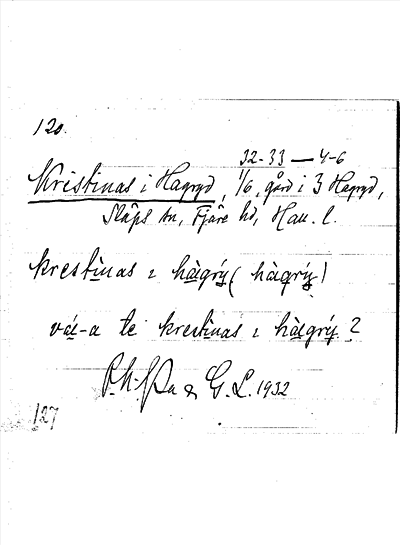 120.
32-33 — 4-6
Kristinas i Hagryd, 1/6, gård i 3 Hagryd,
Släps sn, Fjäre hd, Hall. l.
krestìnas ı hàgrý ( hàgrý )
vá-a te krestìnas ı hàgrý ?
& G. L. 1932
127